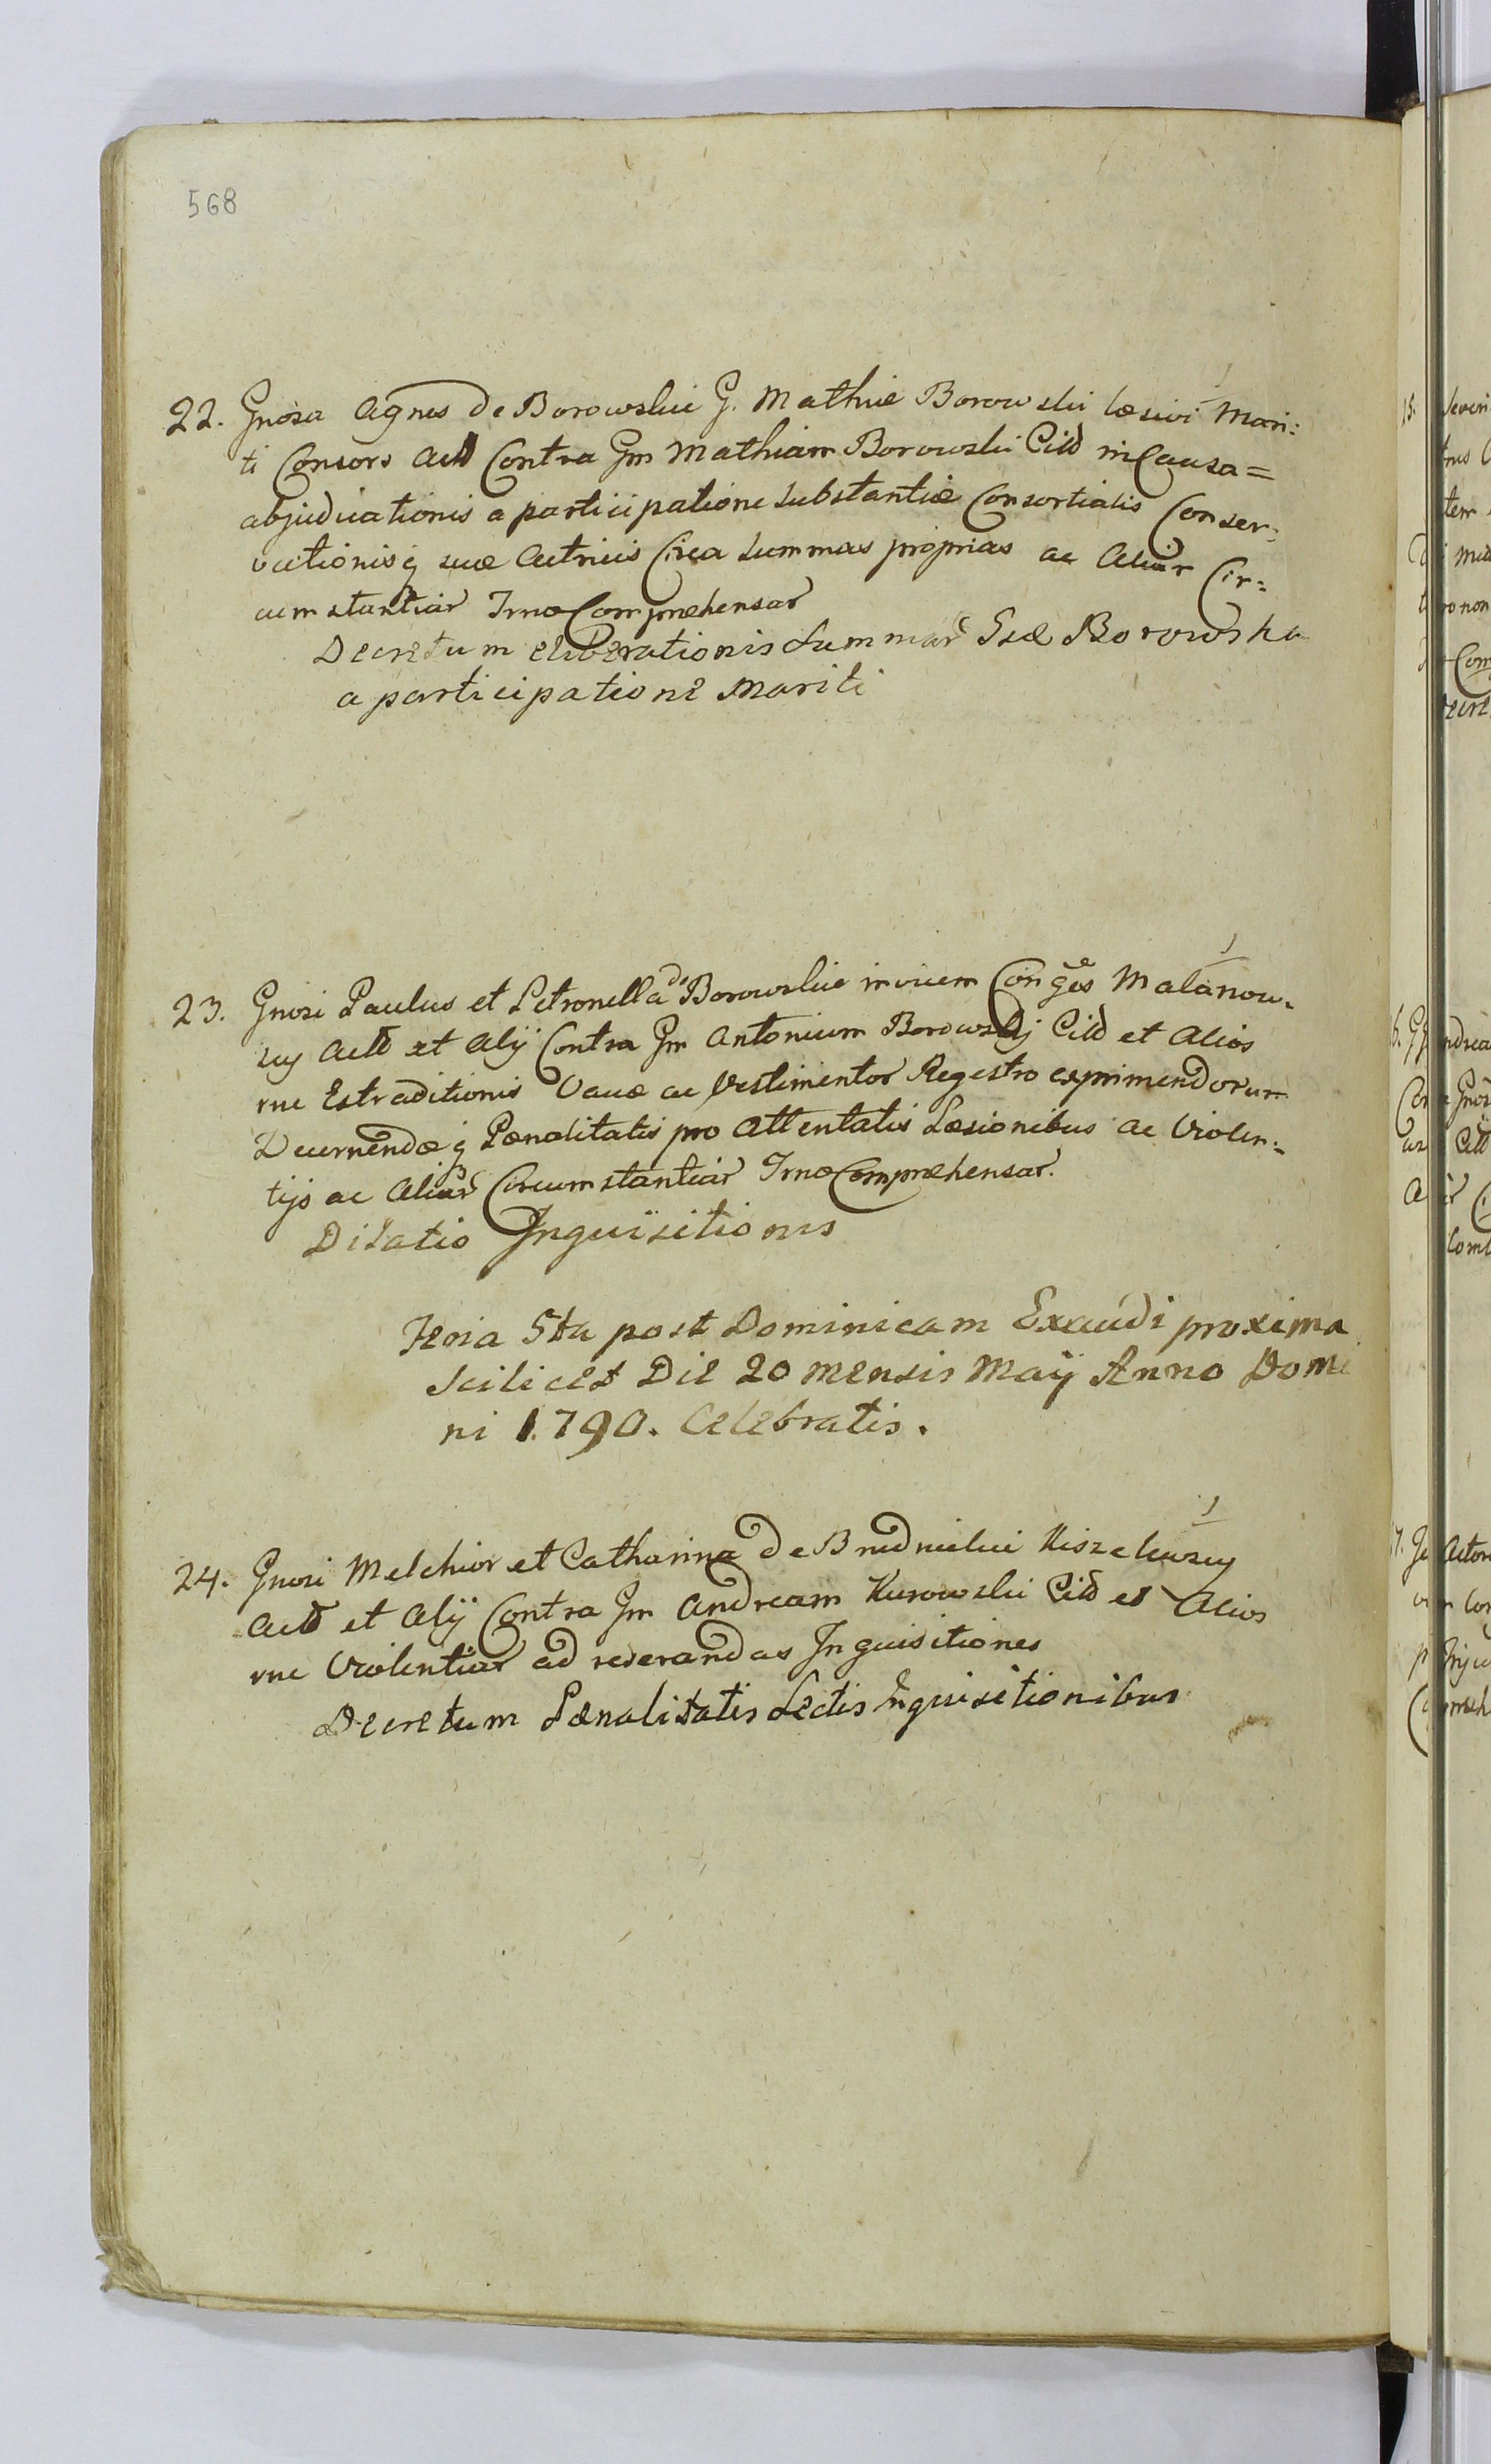 568
22. Gnosa Agnes de Borowskie G. Mathiæ Borowski læsivi Mari:
ti Consors Actt Contra Gm Mathiam Borowski Citt in Causa=
abjudicationis a participatione substantiæ Consortialis Conser:
vationisq suæ Actricis Circa Summas proprias ac Aliar Cir:
cumstantiar Trno Comprehensar
Decretum eliberationis Summar Gsæ Borowska
a participatione Mariti
23. Gnosi Paulus et Petronella de Borowskie invicem Conges Malanow:
scy Actt et Alij Contra Gm Antonium Borowskj Citt et Alios
rne Extraditionis Vacæ ac Vestimentor Regestro exprimendorum
Decernendæq Pænalitatis pro Attentatis Læsionibus ac Violen:
tijs ac Aliar Circumstantiar Trno Comprehensar.
Dilatio Inquisitionis
Feria 5ta post Dominicam Exaudi proxima
Scilicet Die 20 mensis Maij Anno Domi
ni 1790. Celebratis.
24. Gnosi Melchior et Catharina de Brudnickie
Actt et Alij Contra Gm Andream Kurowski Citt et Alios
rne Violentiar ad reserandas Inquisitiones
Decretum Pænalitatis Lectis Inquisitionibus